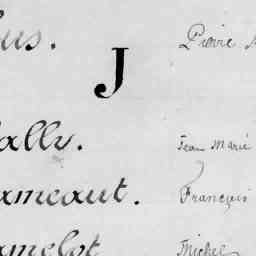 us. Pierre
J
ally. Jean Marie
ameaut. François
amelot Michel